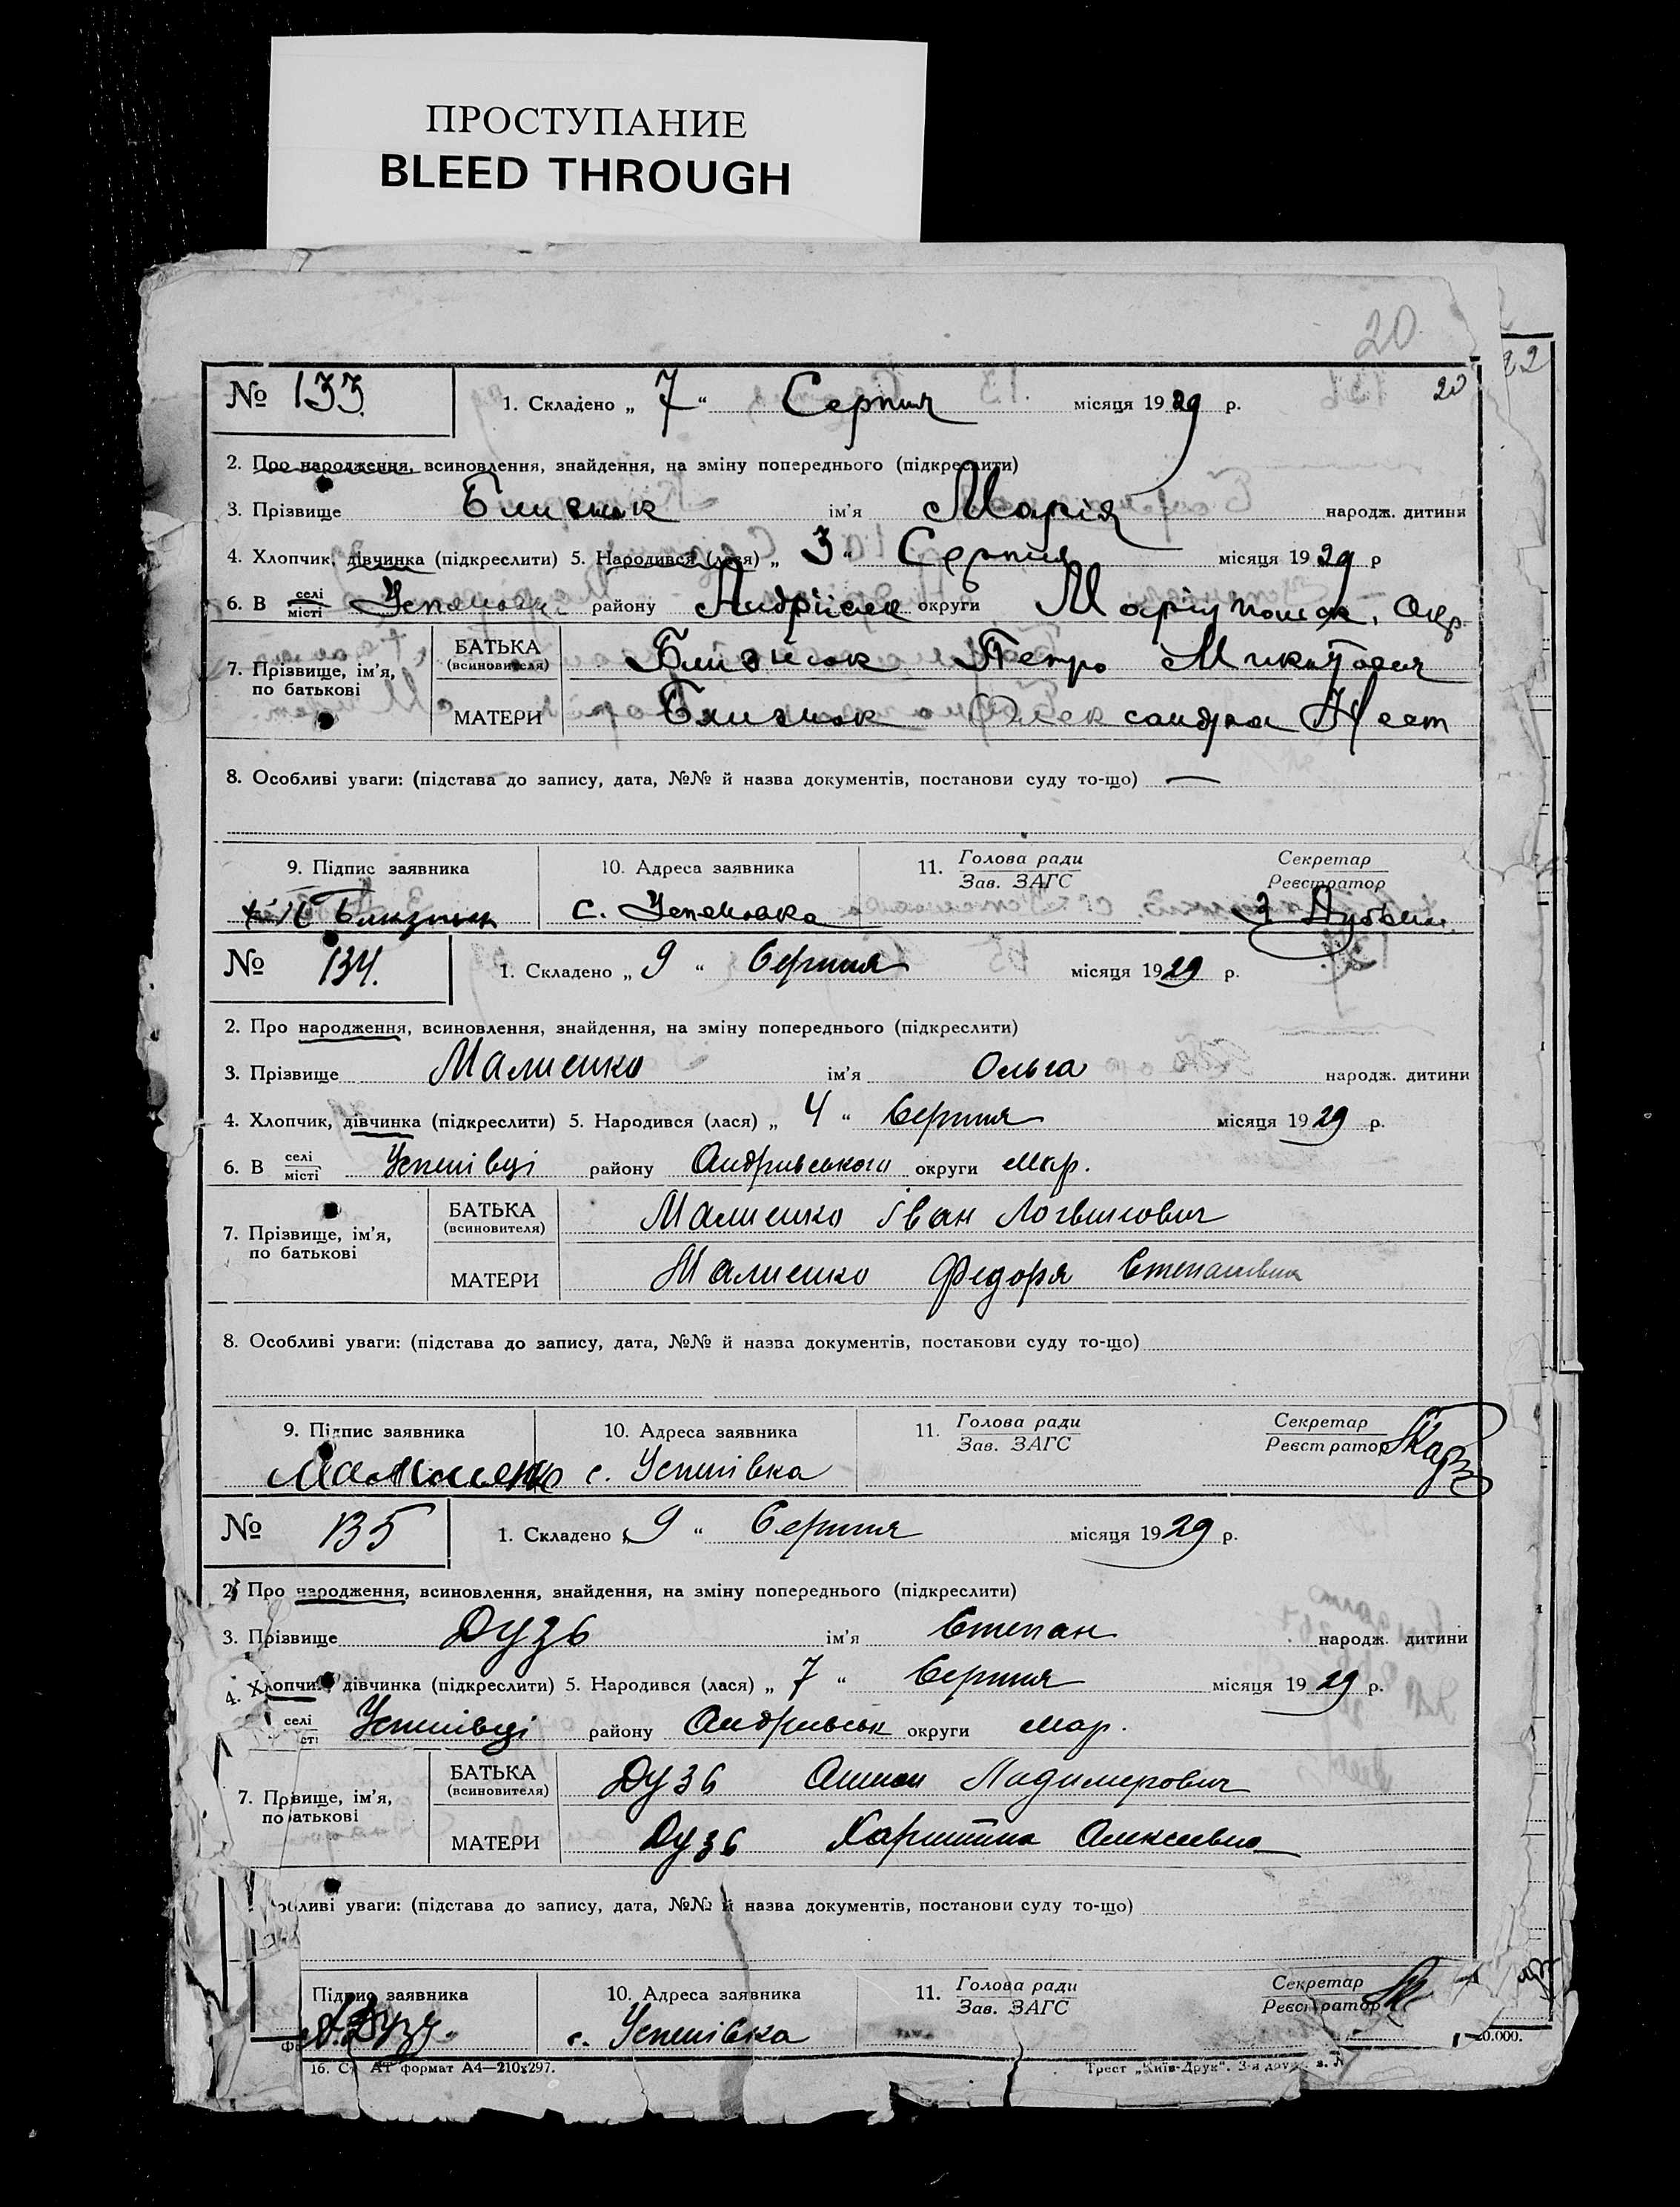 ПРОСТУПАНИЕ
BLEED THROUGH
20
22
20
№ 133. 1. Складено „ 7 “ Серпня місяця 1929 р.
2. Про народження, всиновлення, знайдення, на зміну попереднього (підкреслити)
3. Прізвище Близнюк ім'я Марія народж. дитини
4. Хлопчик, дівчинка (підкреслити) 5. Народився (лася) „ 3 “ Серпня місяця 1929 р
6. В селі місті району Андріївск округи Маріупольск. Окр.
7. Прізвище, ім'я, по батькові
БАТЬКА (всиновителя) Близнюк Петро Микитович
МАТЕРИ Близнюк Олександра Нест
8. Особливі уваги: (підстава до запису, дата, №№ й назва документів, постанови суду то-що) —
9. Підпис заявника 10. Адреса заявника 11. Голова ради Зав. ЗАГС Секретар Реєстратор
Близнюк с.
№ 134. 1. Складено „ 9 “ Серпня місяця 1929 р.
2. Про народження, всиновлення, знайдення, на зміну попереднього (підкреслити)
3. Прізвище Малиенко ім'я Ольга народж. дитини
4. Хлопчик, дівчинка (підкреслити) 5. Народився (лася) „ 4 “ Серпня місяця 1929 р.
6. В селі місті Успенівці району Андривського округи Мар.
7. Прізвище, ім'я, по батькові
БАТЬКА (всиновителя) Малиенко Іван Логвинович
МАТЕРИ Малиенко Федоря Степанівна
8. Особливі уваги: (підстава до запису, дата, №№ й назва документів, постанови суду то-що)
9. Підпис заявника 10. Адреса заявника 11. Голова ради Зав. ЗАГС Секретар Реєстратор
с. Успенівка
№ 135 1. Складено „ 9 “ Серпня місяця 1929 р.
2. Про народження, всиновлення, знайдення, на зміну попереднього (підкреслити)
3. Прізвище Дузь ім'я Степан народж. дитини
4. Хлопчи дівчинка (підкреслити) 5. Народився (лася) „ 7 “ Серпня місяця 1929 р.
селі Успенівці району Андривськ округи Мар.
7. Прізвище, ім'я, по батькові
БАТЬКА (всиновителя) Дузь Ладимерович
МАТЕРИ Дузь Харитина Алексеевна
уваги: (підстава до запису, дата, №№ й назва документів, постанови суду то-що)
Підпис заявника 10. Адреса заявника 11. Голова ради Зав. ЗАГС Секретар Реєстратор
с. Успенівка
формат А4—210x297. Трест „Київ-Друк“. 3-я друк.